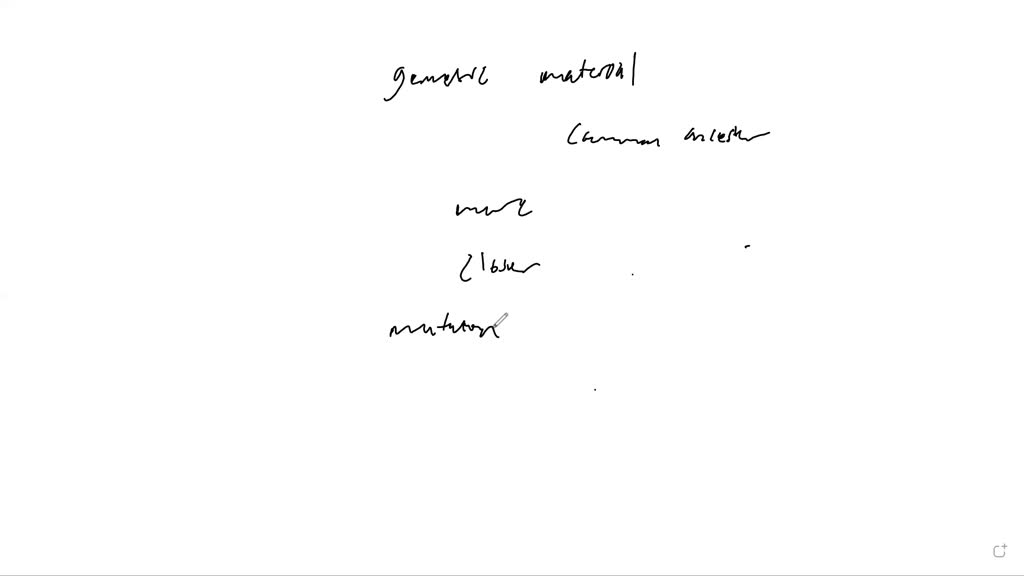 genetic material
common ancestor
more
closer
mutation